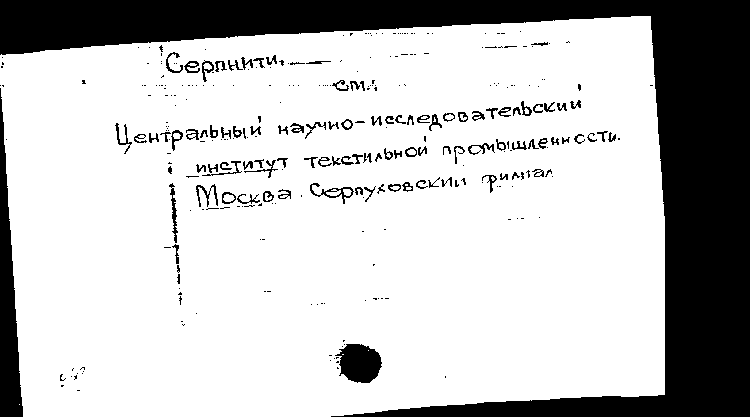 Серпнити.
см.:
Центральный научно-исследовательский
институт текстильной промышленности.
Москва. Серпуховский филиал